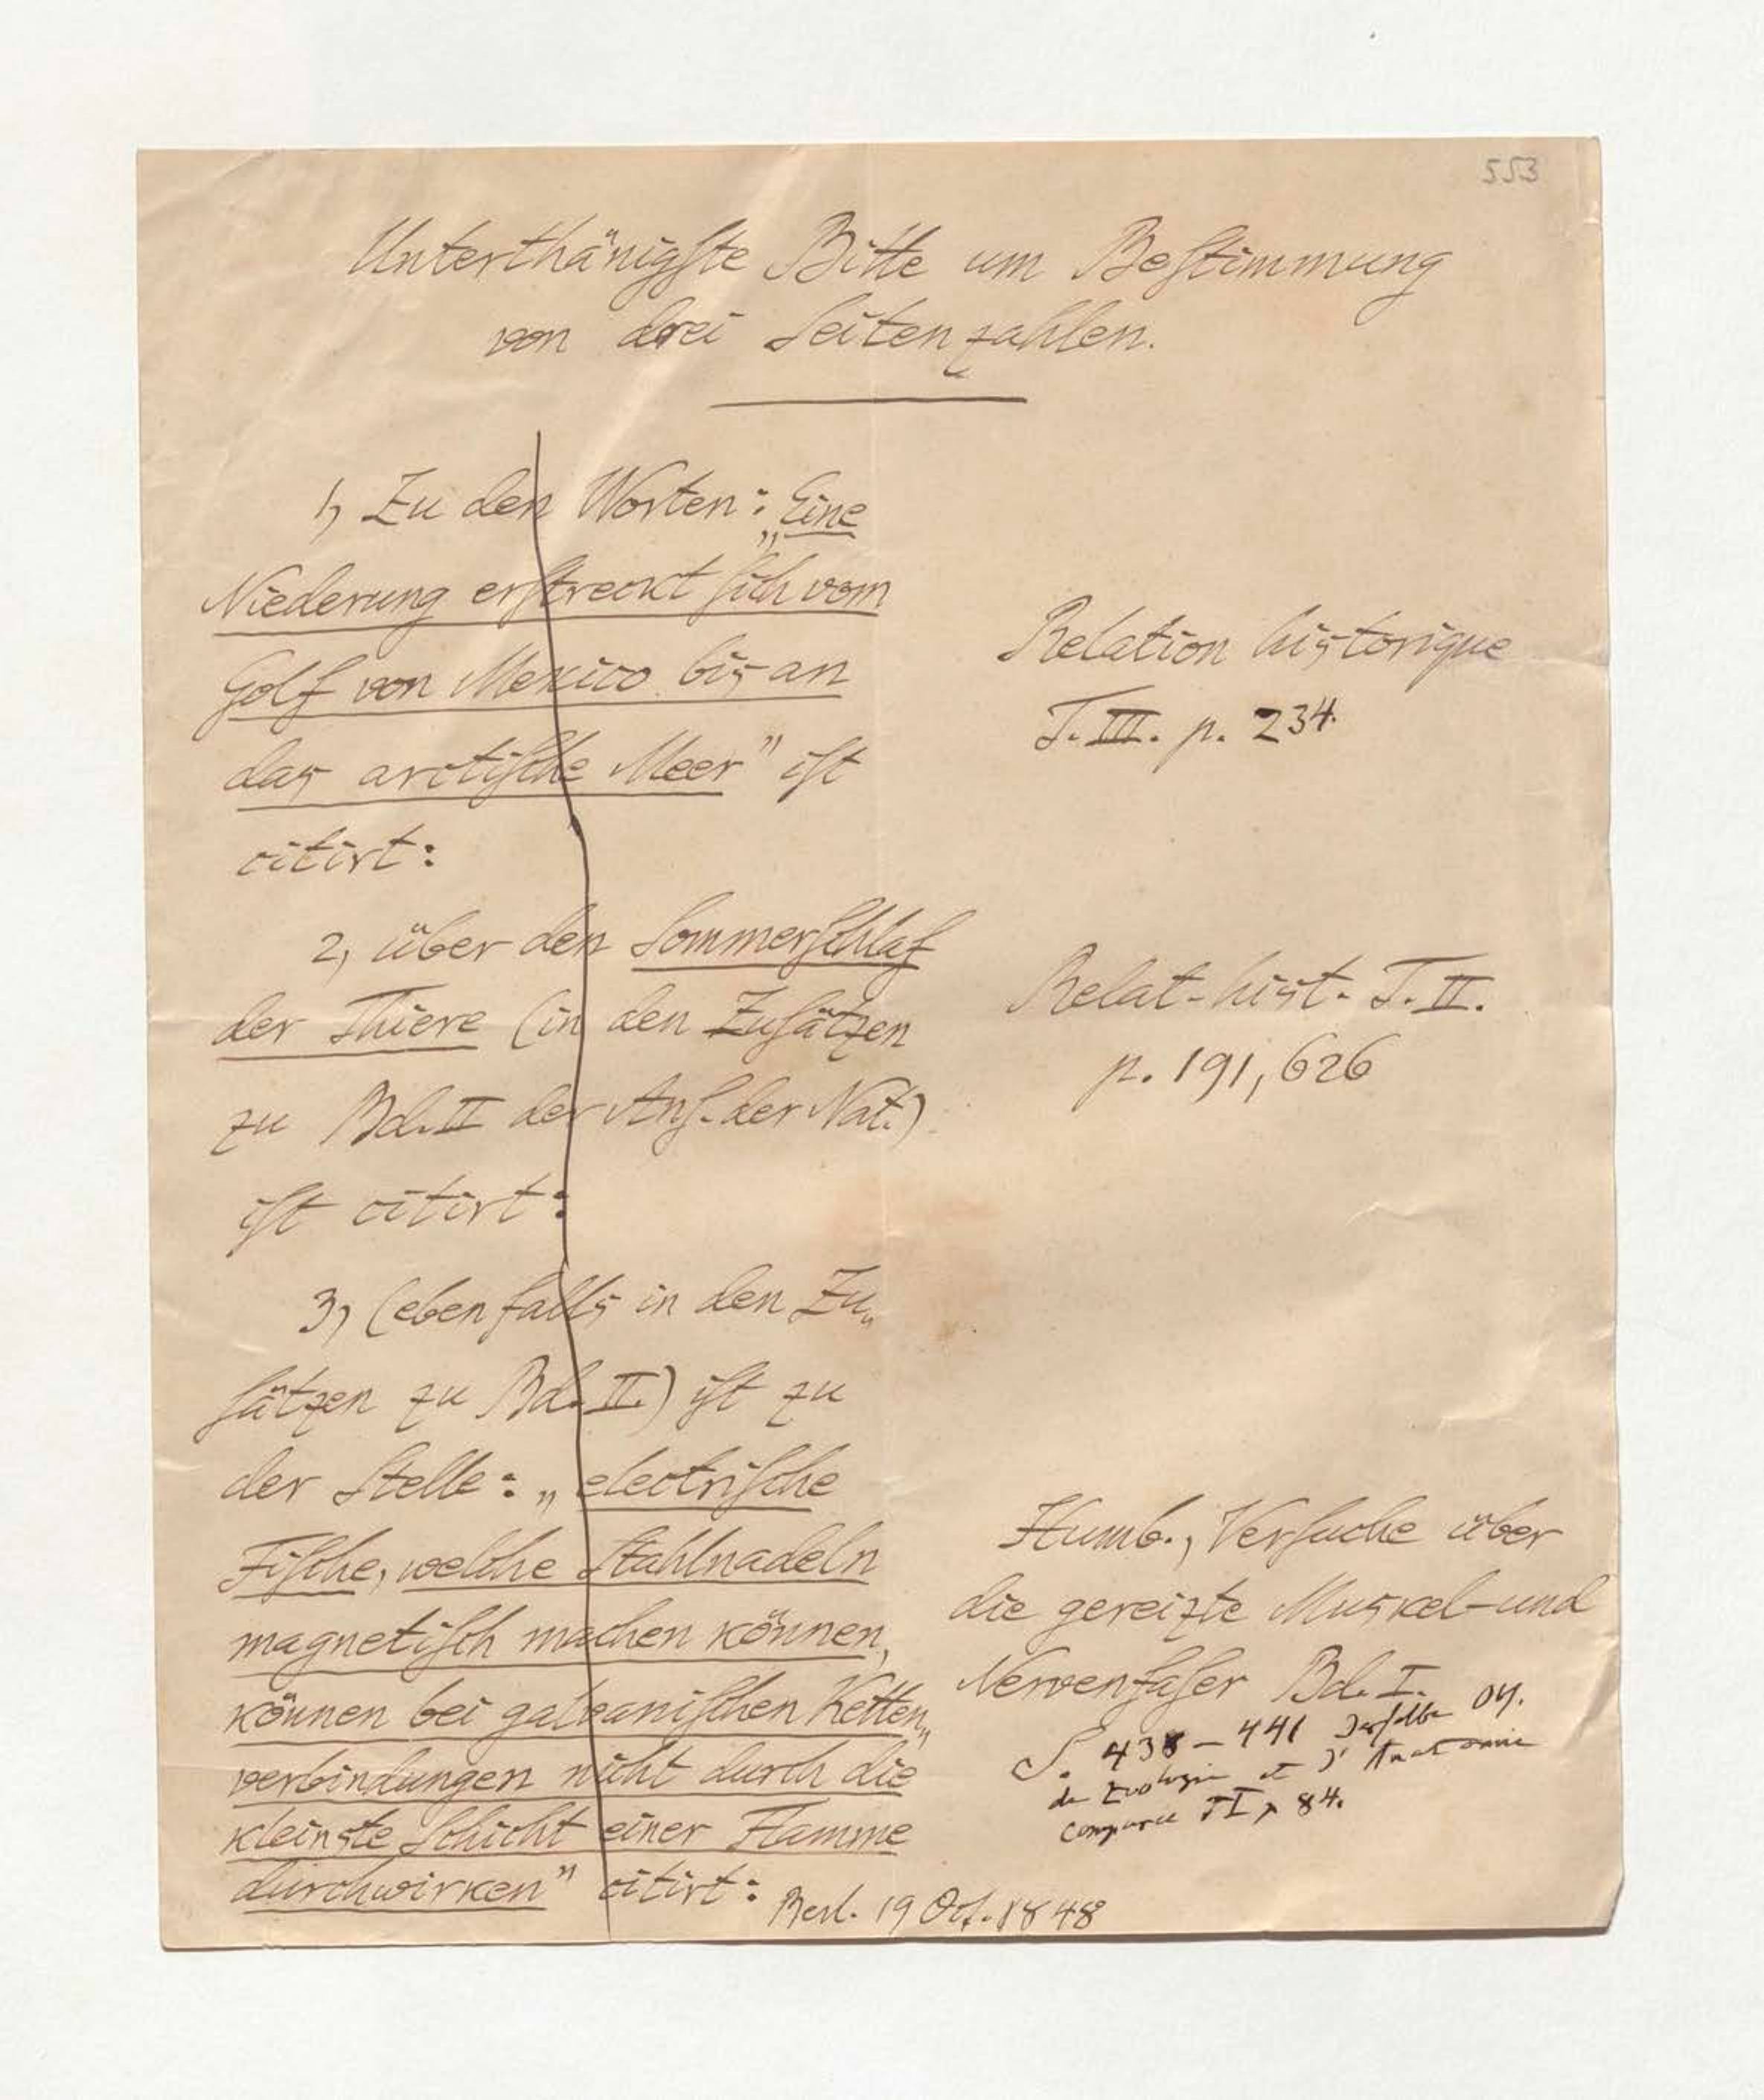 553
Unterthänigſte Bitte um Beſtimmung
von drei Seitenzahlen.
1, Zu den Worten: „Eine
Niederung erſtreckt ſich vom
Golf von Mexico bis an
das arctiſche Meer" iſt
citirt:
Relation historique
T. III. p. 234.
2, über den Sommerſchlaf
der Thiere (in den Zuſätzen
zu Bd. II der Anſ. der Nat.)
iſt citirt:
Relat. hist. T. II.
p. 191, 626
3, (ebenfalls in den Zu„
ſätzen zu Bd. II.) iſt zu
der Stelle: „electriſche
Fiſche, welche Stahlnadeln
magnetiſch machen können,
können bei galvaniſchen Ketten„
verbindungen nicht durch die
kleinste Schicht einer Flamme
durchwirken" citirt:
Humb., Verſuche über
die gereizte Muskel- und
Nervenfaſer Bd. I.
S. 438 – 441 Derſelbe
de Zoologie et d'Anatomie
comparée T I p 84.
Berl. 19 Oct. 1848